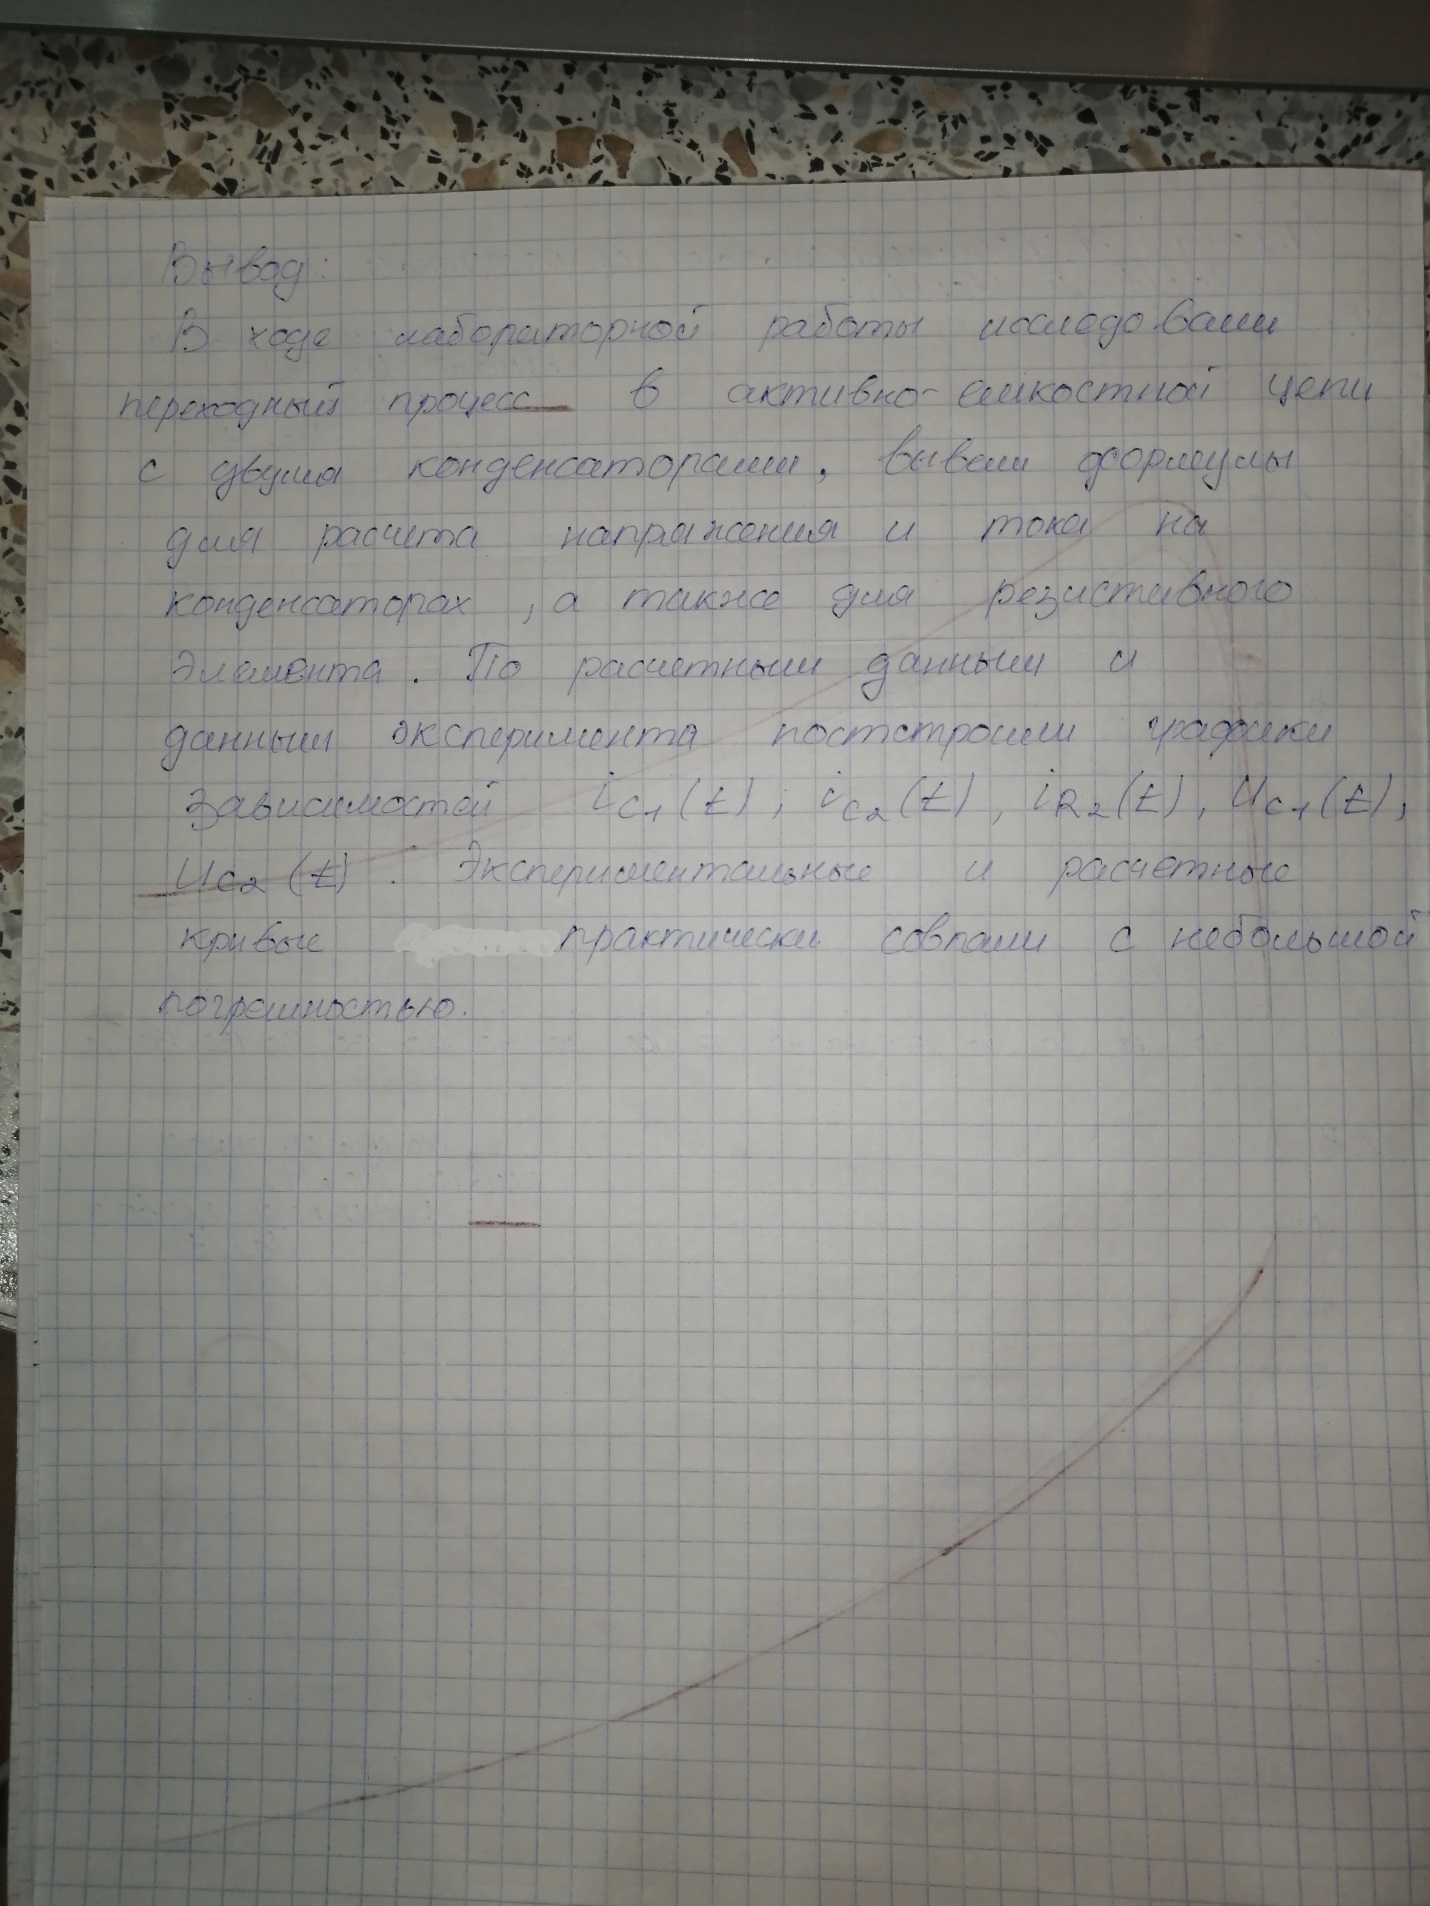 Вывод:
В ходе лабораторной работы исследовали
переходный процесс в активно-емкостной цепи
с двумя конденсаторами, вывели формулы
для расчета напряжения и тока на
конденсаторах, а также для резистивного
элемента. По расчетным данным и
данным эксперимента постстроили графики
зависимостей i_C1(t), i_C2(t), i_R2(t), u_C1(t),
u_C2(t). Экспериментальные и расчетные
кривые практически совпали с небольшой
погрешностью.